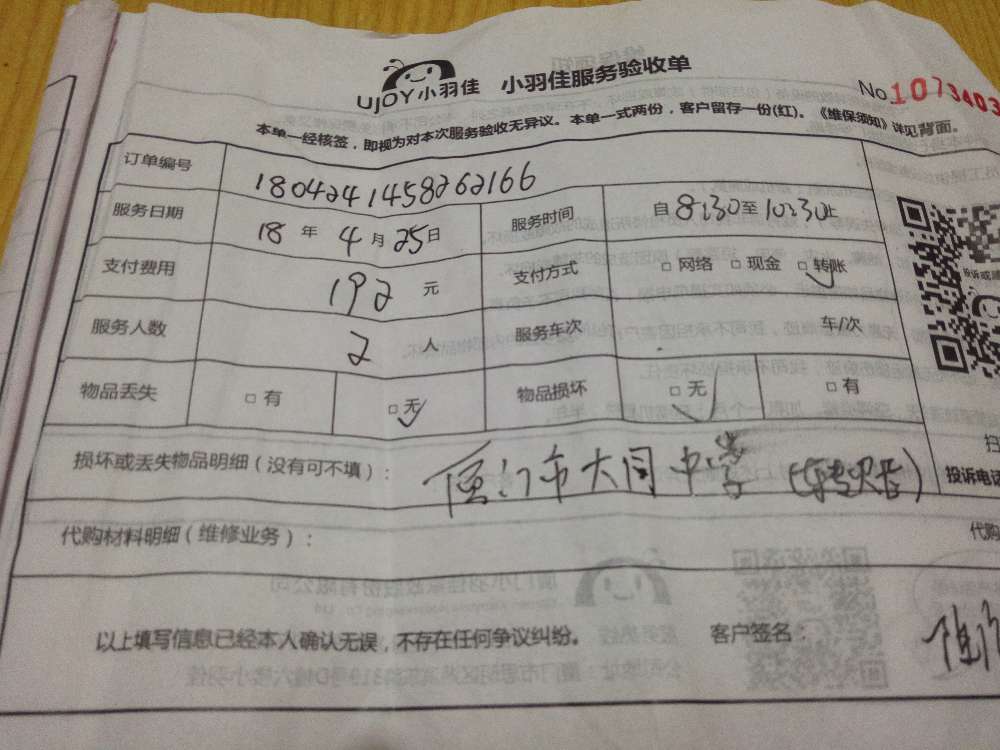 UJOY小羽佳 小羽佳服务验收单
No 1073403
本单一经核签，即视为对本次服务验收无异议。本单一式两份，客户留存一份(红)。《维保须知》详见背面。
订单编号 1804241458262166
服务日期 18 年 4 月 25 日 服务时间 自 8:30 至 10:30 止
支付费用 192 元 支付方式 □ 网络 □ 现金 □ 转账
服务人数 2 人 服务车次 车/次
物品丢失 □ 有 □ 无 物品损坏 □ 无 □ 有
投诉或
损坏或丢失物品明细（没有可不填）： 厦门市大同中学（转账）
扫
投诉电话
代购材料明细（维修业务）： 代购
以上填写信息已经本人确认无误，不存在任何争议纠纷。 客户签名：